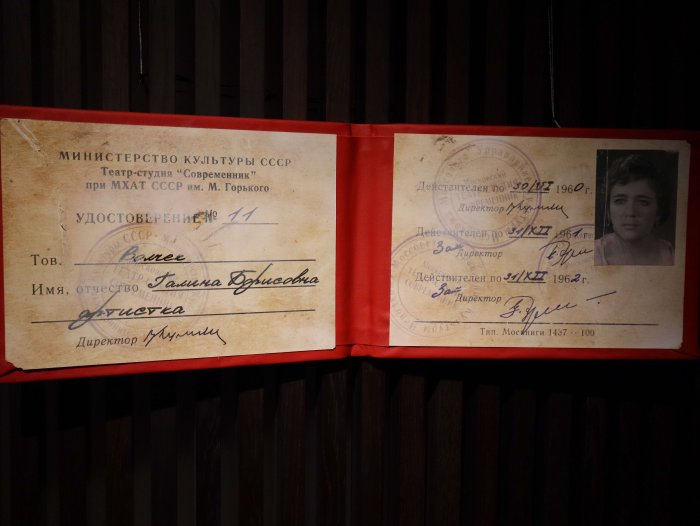 МИНИСТЕРСТВО КУЛЬТУРЫ СССР
Театр-студия "Современник"
при МХАТ СССР им. М. Горького
УДОСТОВЕРЕНИЕ № 11
Тов. Волчек
Имя, отчество Галина Борисовна
артистка
Директор
Действителен по 30/VI 1960 г.
Директор
Действителен по 31/XII 1961 г.
Зам Директор
Действителен по 31/XII 1962 г.
Зам Директор
Тип. Москниги 1437—100